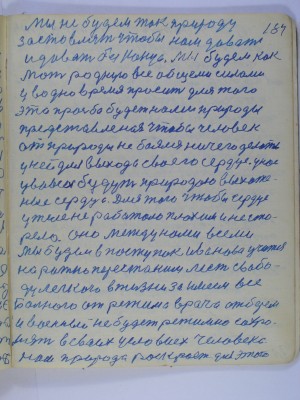 187
Мы не будем так природу
заставлять чтобы нам давать
и давать без конца. Мы будем как
мать родную все общими силами
у одно время просить для того
эта прозьба будет нами природы
представленая чтобы человек
от природы не боялся ничего делать
у ней для выхода своего сердце. у нас
у всех будут природою
сердца. Для того чтобы сердце
у тие не работало плохим и не ста-
рело оно между нами всеми
Мы будем в поступок Иванова учится
перестанем лист свобо-
ду легкого в жизни за имеем все
Больного от режима врача отберем
и военый не будет режимно сохра-
нять в своих условиях человека
нам природа роскроет для этого